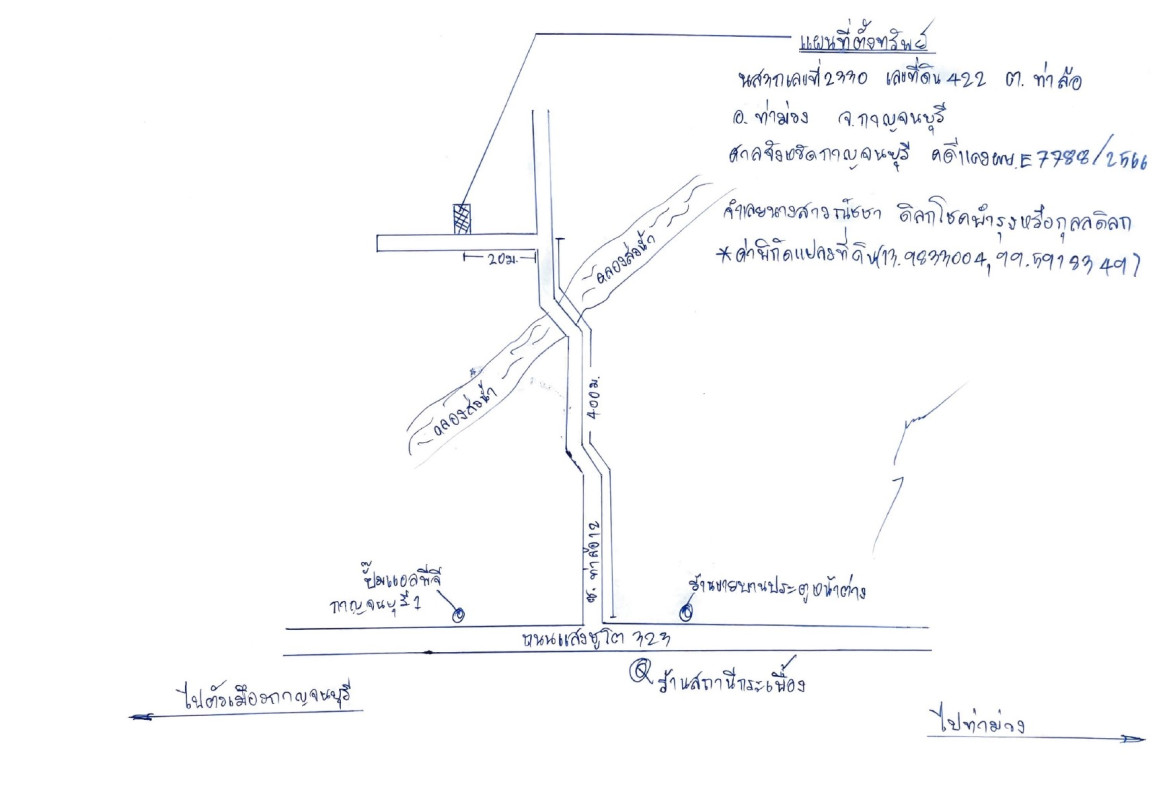 แผนที่ตั้งทรัพย์
นส3กเลขที่ 2330 เลขที่ดิน 422 ต. ท่าล้อ
อ. ท่าม่วง จ.กาญจนบุรี
ศาลจังหวัดกาญจนบุรี คดีแดงผบ.E7788/2566
จำเลยนางสาวณัชชา ดิลกโชคบำรุงหรือกุลลดิลก
*ค่าพิกัดแปลงที่ดิน(13.9833004,99.5918349)
20ม.
คลองส่งน้ำ
คลองส่งน้ำ
400ม.
ซ. ท่าล้อ12
ปั๊มแอลพีจี
กาญจนบุรี 1
ร้านขายบานประตูหน้าต่าง
ถนนแสงชูโต 323
ร้านสถานีกระเบื้อง
ไปตัวเมืองกาญจนบุรี
ไปท่าม่วง